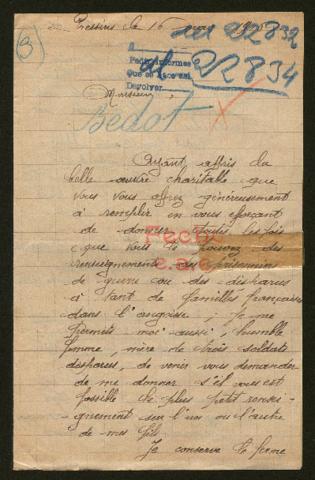 3
Pressins le 16 mars
22832
22834
Pedir informes
que se
Devolver
Monsieur
Bedot
Ayant appris la
belle œuvre charitable que
vous vous offrez généreusement
à remplir en vous efforçant
de donner toutes les fois
que vous le pouvez des
renseignements aux prisonniers
de guerre ou des disparus
à tant de familles françaises
dans l'angoisse ; Je me
permets moi aussi, humble
femme, mère de trois soldats
disparus, de venir vous demander
de me donner s'il vous est
possible le plus petit rensei-
-gnement sur l'un ou l'autre
de mes fils.
Je conserve la ferme